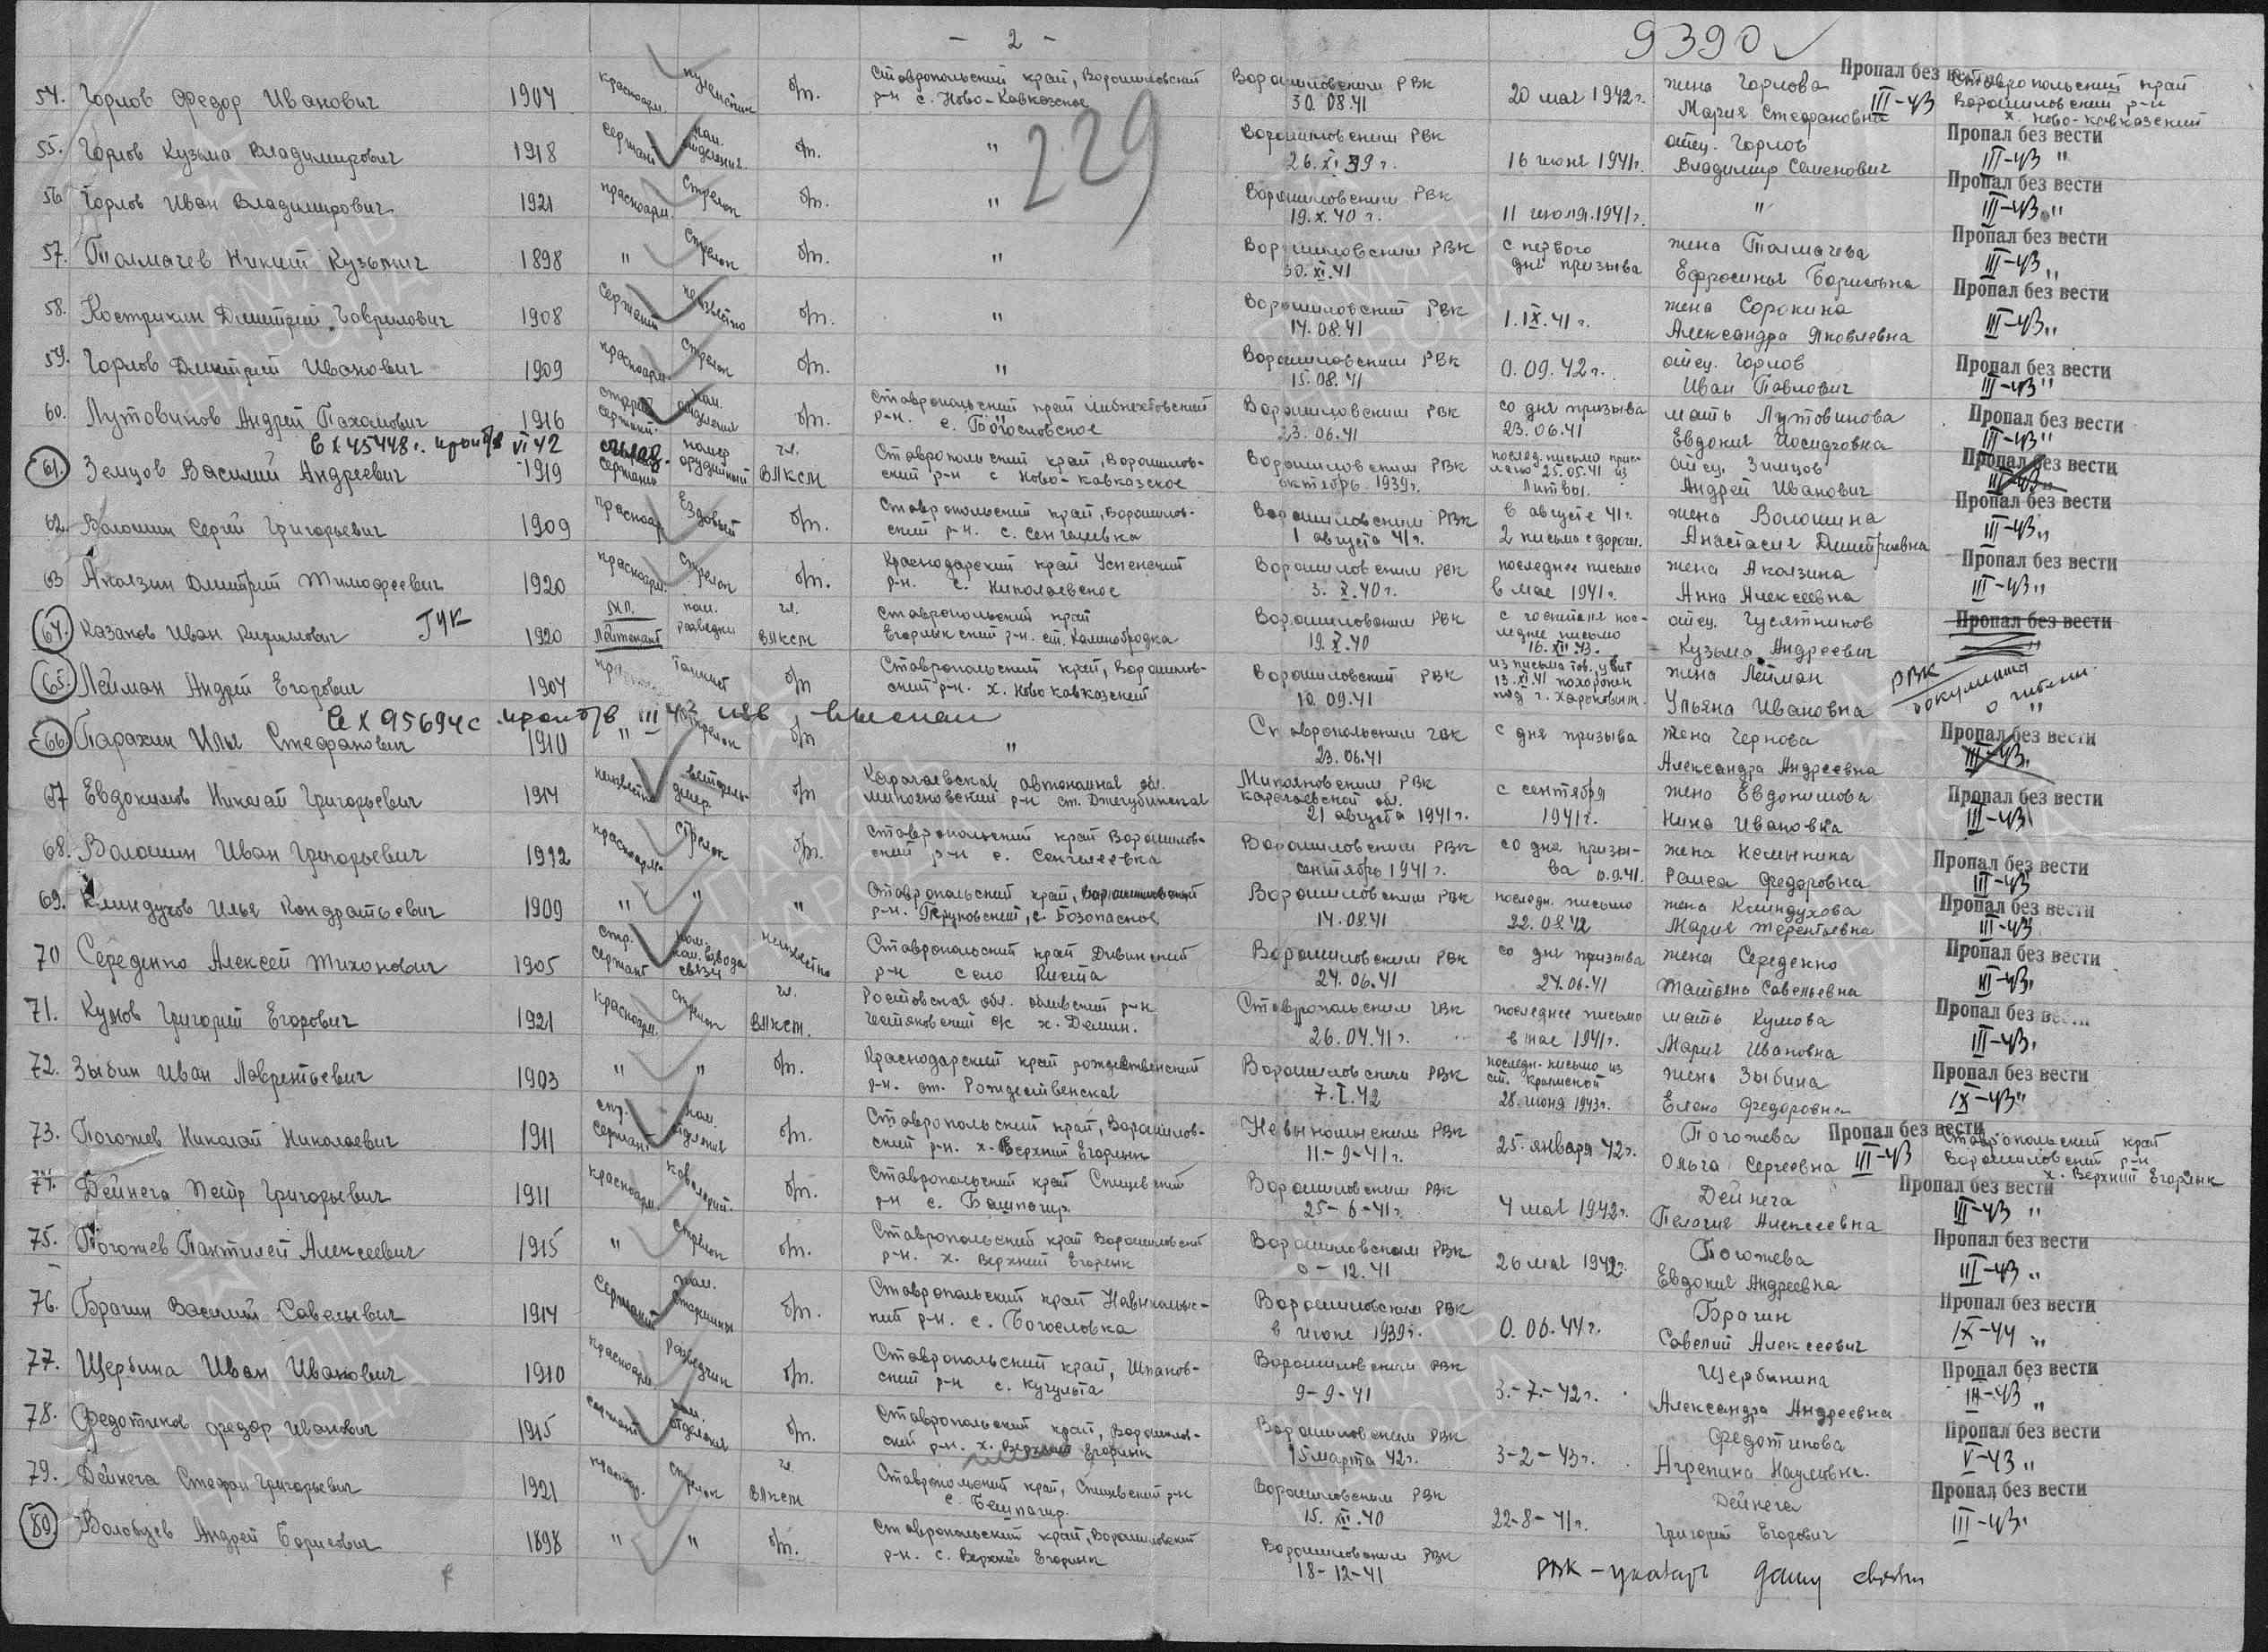 - 2 -
9390
229
54. Горлов Федор Иванович 1904 красноарм. пулеметчик б/п. Ставропольский край, Ворошиловский р-н с. Ново-Кавказское Ворошиловским РВК 30.08.41 20 мая 1942 г. жена Горлова Мария Стефановна Пропал без вести III-43 Ставропольский край Ворошиловский р-н х. Ново-Кавказский
55. Горлов Кузьма Владимирович 1918 сержант ком. отделения б/п. " Ворошиловским РВК 26.XI.39 г. 16 июня 1941 г. отец. Горлов Владимир Семенович Пропал без вести III-43 "
56 Горлов Иван Владимирович 1921 красноарм. стрелок б/п. " Ворошиловским РВК 19.X.40 г. 11 июля 1941 г. " Пропал без вести III-43 "
57. Толмачев Никит Кузьмич 1898 " стрелок б/п. " Ворошиловским РВК 30.XI.41 с первого дня призыва жена Толмачева Ефросинья Борисовна Пропал без вести III-43 "
58. Кострикин Дмитрий Гаврилович 1908 сержант неизвестно б/п. " Ворошиловский РВК 14.08.41 1.IX.41 г. жена Сорокина Александра Яковлевна Пропал без вести III-43 "
59. Горлов Дмитрий Иванович 1909 красноарм. стрелок б/п. " Ворошиловским РВК 15.08.41 0.09.42 г. отец. Горлов Иван Павлович Пропал без вести III-43 "
60. Лутовинов Андрей Пахомович 1916 старш. сержант ком. отделения б/п. Ставропольский край Либкнехтовский р-н. с. Богословское Ворошиловским РВК 23.06.41 со дня призыва 23.06.41 мать Лутовинова Евдокия Исидровна Пропал без вести III-43 "
61. Земцов Василий Андреевич 1919 сержант номер орудийный чл. ВЛКСМ Ставропольский край, Ворошиловский р-н с Ново-Кавказское Ворошиловским РВК октябрь 1939 г. послед. письмо прислано 25.05.41 из Литвы. отец. Зимцов Андрей Иванович Пропал без вести
62. Волошин Сергей Григорьевич 1909 красноарм. Ездовый б/п. Ставропольский край, Ворошиловский р-н. с. Сенгилеевка Ворошиловским РВК 1 августа 41 г. в августе 41 г. 2 письма с дороги. жена Волошина Анастасия Дмитриевна Пропал без вести III-43 "
63 Акаязин Дмитрий Тимофеевич 1920 красноарм. стрелок б/п. Краснодарский край Успенский р-н. с. Николаевское Ворошиловским РВК 3.X.40 г. последнее письмо в мае 1941 г. жена Акаязина Анна Алексеевна Пропал без вести III-43 "
64. Казаков Иван Кириллович ГУК 1920 мл. Лейтенант ком. разведки чл. ВЛКСМ Ставропольский край Егорлыкский р-н. ст. Каменобродка Ворошиловским РВК 19.X.40 с госпиталя последнее письмо 16.XII.43. отец. Гусятников Кузьма Андреевич Пропал без вести
65. Лейман Андрей Егорович 1904 танкист б/п Ставропольский край, Ворошиловский р-н. х. Ново Кавказский Ворошиловский РВК 10.09.41 из письма тов. убит 13.XI.41 похоронен под г. Харьковым. жена Лейман Ульяна Ивановна РВК документы о гибели
66. Парахин Илья Стефанович 1910 " стрелок б/п " Ставропольским ГВК 23.06.41 с дня призыва жена Чернова Александра Андреевна Пропал без вести III-43
67 Евдокимов Николай Григорьевич 1914 неизвестно б/п Карачаевская автономная обл. Микояновский р-н ст. Джегутинская Микояновским РВК карачаевской обл. 21 августа 1941 г. с сентября 1941 г. жена Евдокимова Нина Ивановна Пропал без вести III-43
68. Волошин Иван Григорьевич 1912 красноарм. стрелок б/п. Ставропольский край Ворошиловский р-н с. Сенгилеевка Ворошиловским РВК сентябрь 1941 г. со дня призыва 0.9.41. жена Немыкина Раиса Федоровна Пропал без вести III-43
69. Клиндухов Илья Кондратьевич 1909 " " " Ставропольский край, р-н. Труновский, с. Безопасное Ворошиловским РВК 14.08.41 последн. письмо 22.08.42 жена Клиндухова Мария Терентьевна Пропал без вести III-43
70 Середенко Алексей Тихонович 1905 стр. сержант пом. ком. взвода связи неизвестно Ставропольский край Дивинский р-н село Киста Ворошиловским РВК 24.06.41 со дня призыва 24.06.41 жена Середенко Татьяна Савельевна Пропал без вести III-43
71. Кумов Григорий Егорович 1921 красноарм. стрелок чл. ВЛКСМ. Ростовская обл. обливский р-н с/с х. Демин. Ставропольским ГВК 26.04.41 г. последнее письмо в мае 1941 г. мать Кумова Мария Ивановна Пропал без вести III-43
72. Зыбин Иван Лаврентьевич 1903 " " б/п. Краснодарский край рождественский р-н. ст. Рождественская Ворошиловским РВК 7.I.42 последн. письмо из ст. Крымской 28 июня 1943 г. жена Зыбина Елена Федоровна Пропал без вести IX-43 "
73. Погожев Николай Николаевич 1911 сержант ком. отделения б/п. Ставропольский край, Ворошиловский р-н. х. Верхний Егорлык Невыномыским РВК 11-9-41 г. 25 января 42 г. Погожева Ольга Сергеевна Пропал без вести III-43 Ставропольский край Ворошиловский р-н х. Верхний Егорлык
74. Дейнега Петр Григорьевич 1911 красноарм. кавалерий. б/п. Ставропольский край Спицевский р-н с. Бешпагир. Ворошиловским РВК 25-6-41 г. 4 мая 1942 г. Дейнега Пелагия Алексеевна Пропал без вести III-43 "
75. Погожев Пантилей Алексеевич 1915 " стрелок б/п. Ставропольский край Ворошиловский р-н. х. Верхний Егорлык Ворошиловским РВК 0-12.41 26 мая 1942 г. Погожева Евдокия Андреевна Пропал без вести III-43 "
76. Брагин Василий Савельевич 1914 сержант б/п. Ставропольский край р-н. с. Богословка Ворошиловским РВК в июне 1939 г. 0.06.44 г. Брагин Савелий Алексеевич Пропал без вести IX-44 "
77. Щербина Иван Иванович 1910 красноарм. Разведчик б/п. Ставропольский край, Шпаковский р-н с. Кугульта Ворошиловским РВК 9-9-41 3-7-42 г. Щербинина Александра Андреевна Пропал без вести III-43 "
78. Федотиков Федор Иванович 1915 сержант ком. отделения б/п. Ставропольский край, Ворошиловский р-н. х. Верхний Егорлык Ворошиловским РВК 15 марта 42 г. 3-2-43 г. Федотикова Агрепина Наумовна. Пропал без вести V-43 "
79. Дейнега Стефан Григорьевич 1921 красноар. стрелок чл. ВЛКСМ Ставропольский край, Спицевский р-н с. Бешпагир. Ворошиловским РВК 15.XII.40 22-8-41 г. Дейнега Григорий Егорович Пропал без вести III-43
80. Волобуев Андрей Борисович 1898 " " б/п. Ставропольский край, Ворошиловский р-н. с. Верхний Егорлык Ворошиловским РВК 18-12-41 РВК - указать дату связи